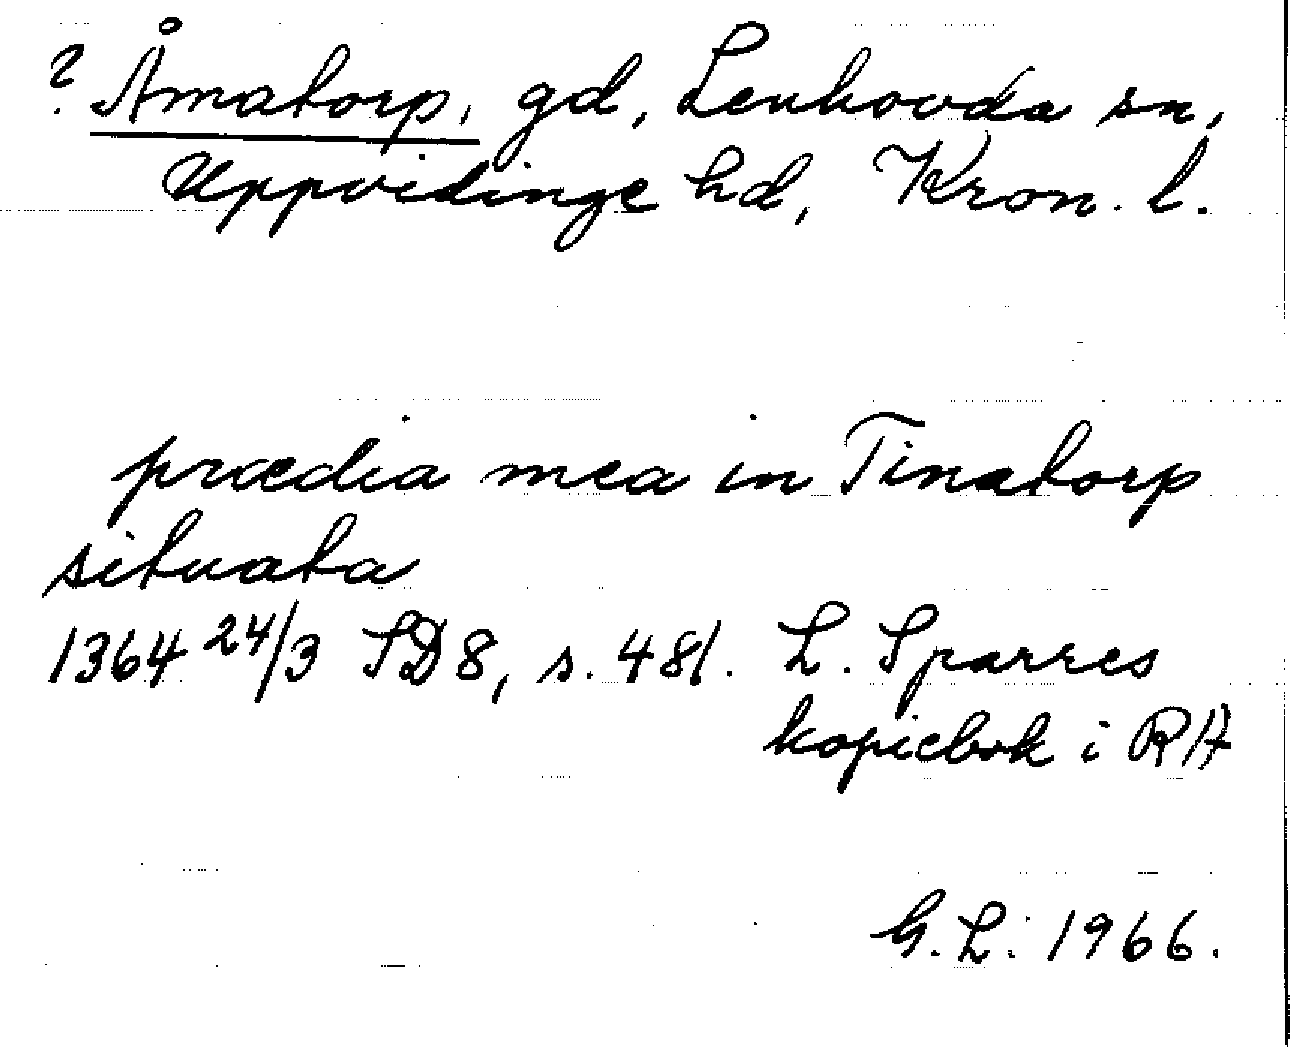 ? Åmatorp, gd, Lenhovda sn,
Uppvidinge hd, Kron. l.
prædia mea in Tinatorp
situata
1364 24/3 SD 8, s. 481. L. Sparres
kopiebok i RA
G. L. 1966.